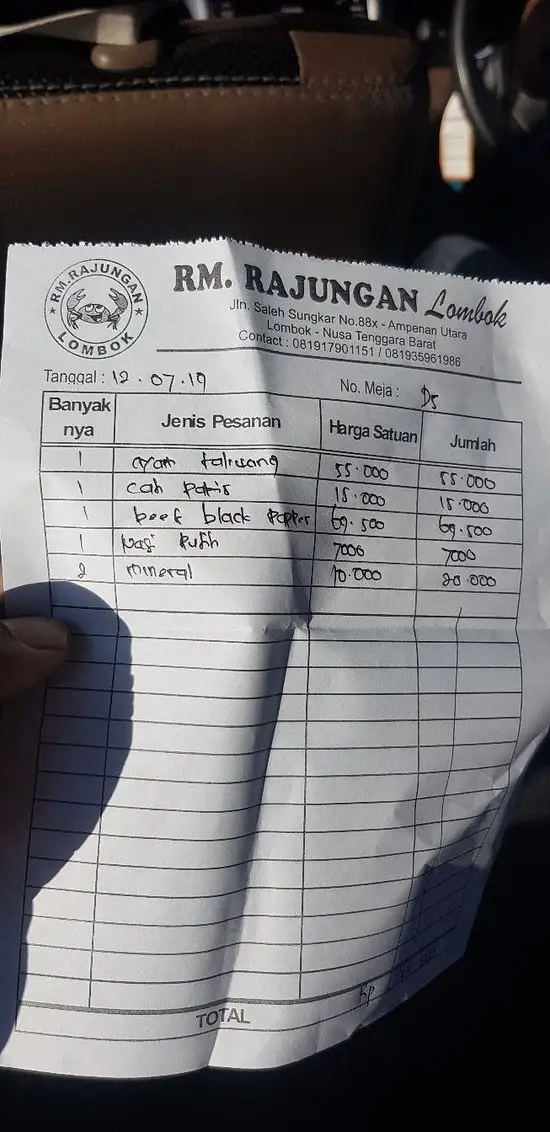 RM. RAJUNGAN
LOMBOK
RM. RAJUNGAN Lombok
Jln. Saleh Sungkar No.88x - Ampenan Utara
Lombok - Nusa Tenggara Barat
Contact : 081917901151 / 081935961986
Tanggal : 12 . 07 . 19 No. Meja : D5
Banyak nya Jenis Pesanan Harga Satuan Jumlah
1 ayam taliwang 55.000 55.000
1 cah 15.000 15.000
1 beef black papper 69.500 69.500
1 nasi putih 7000 7000
2 mineral 10.000 20.000
TOTAL Rp